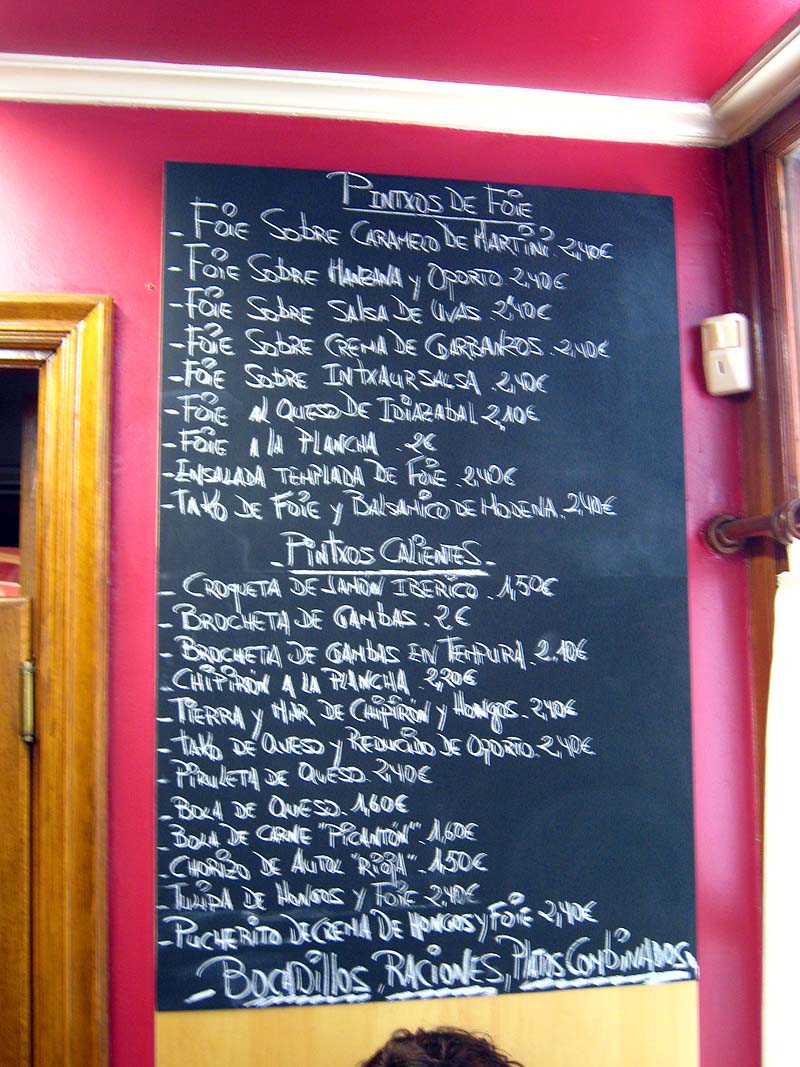 PINTXOS DE FOIE
- FOIE SOBRE CARAMELO DE MARTINI. 2,40€
- FOIE SOBRE MANZANA y OPORTO. 2,40€
- FOIE SOBRE SALSA DE UVAS. 2,40€
- FOIE SOBRE CREMA DE GARBANZOS. 2,40€
- FOIE SOBRE INTXAURSALSA. 2,40€
- FOIE AL QUESO DE IDIAZABAL 2,10€
- FOIE A LA PLANCHA. 2€
- ENSALADA TEMPLADA DE FOIE. 2,40€
- TAKO DE FOIE y BALSAMICO DE MODENA. 2,40€
- PINTXOS CALIENTES -
- CROQUETA DE JAMÓN IBERICO. 1,50€
- BROCHETA DE GAMBAS. 2€
- BROCHETA DE GAMBAS EN TEMPURA. 2,10€
- CHIPIRÓN A LA PLANCHA. 2,20€
- TIERRA y MAR DE CHIPIRÓN y HONGOS. 2,40€
- TAKO DE QUESO y REDUCIDO DE OPORTO. 2,40€
- PIRULETA DE QUESO. 2,40€
- BOLA DE QUESO. 1,60€
- BOLA DE CARNE "PICANTÓN". 1,60€
- CHORIZO DE AUTOL "RIOJA". 1,50€
- TULIPA DE HONGOS y FOIE. 2,40€
- PUCHERITO DE CREMA DE HONGOS y FOIE 2,40€
- BOCADILLOS, RACIONES, PLATOS COMBINADOS,